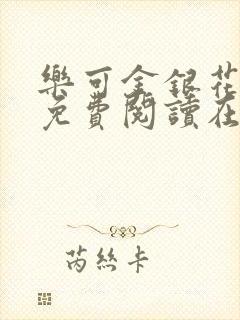 樂可金銀花
免費閱讀在
芮絲卡